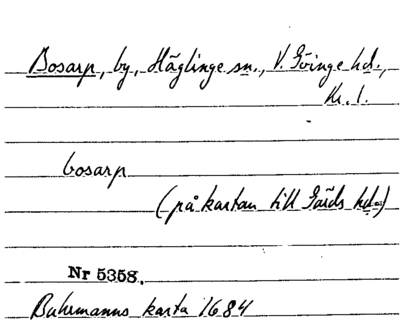 Bosarp, by, Häglinge sn., V. Göinge hd.,
Kr. l.
bosarp
(på kartan till Gärds hd.)
Nr 5358.
Buhrmanns karta 1684